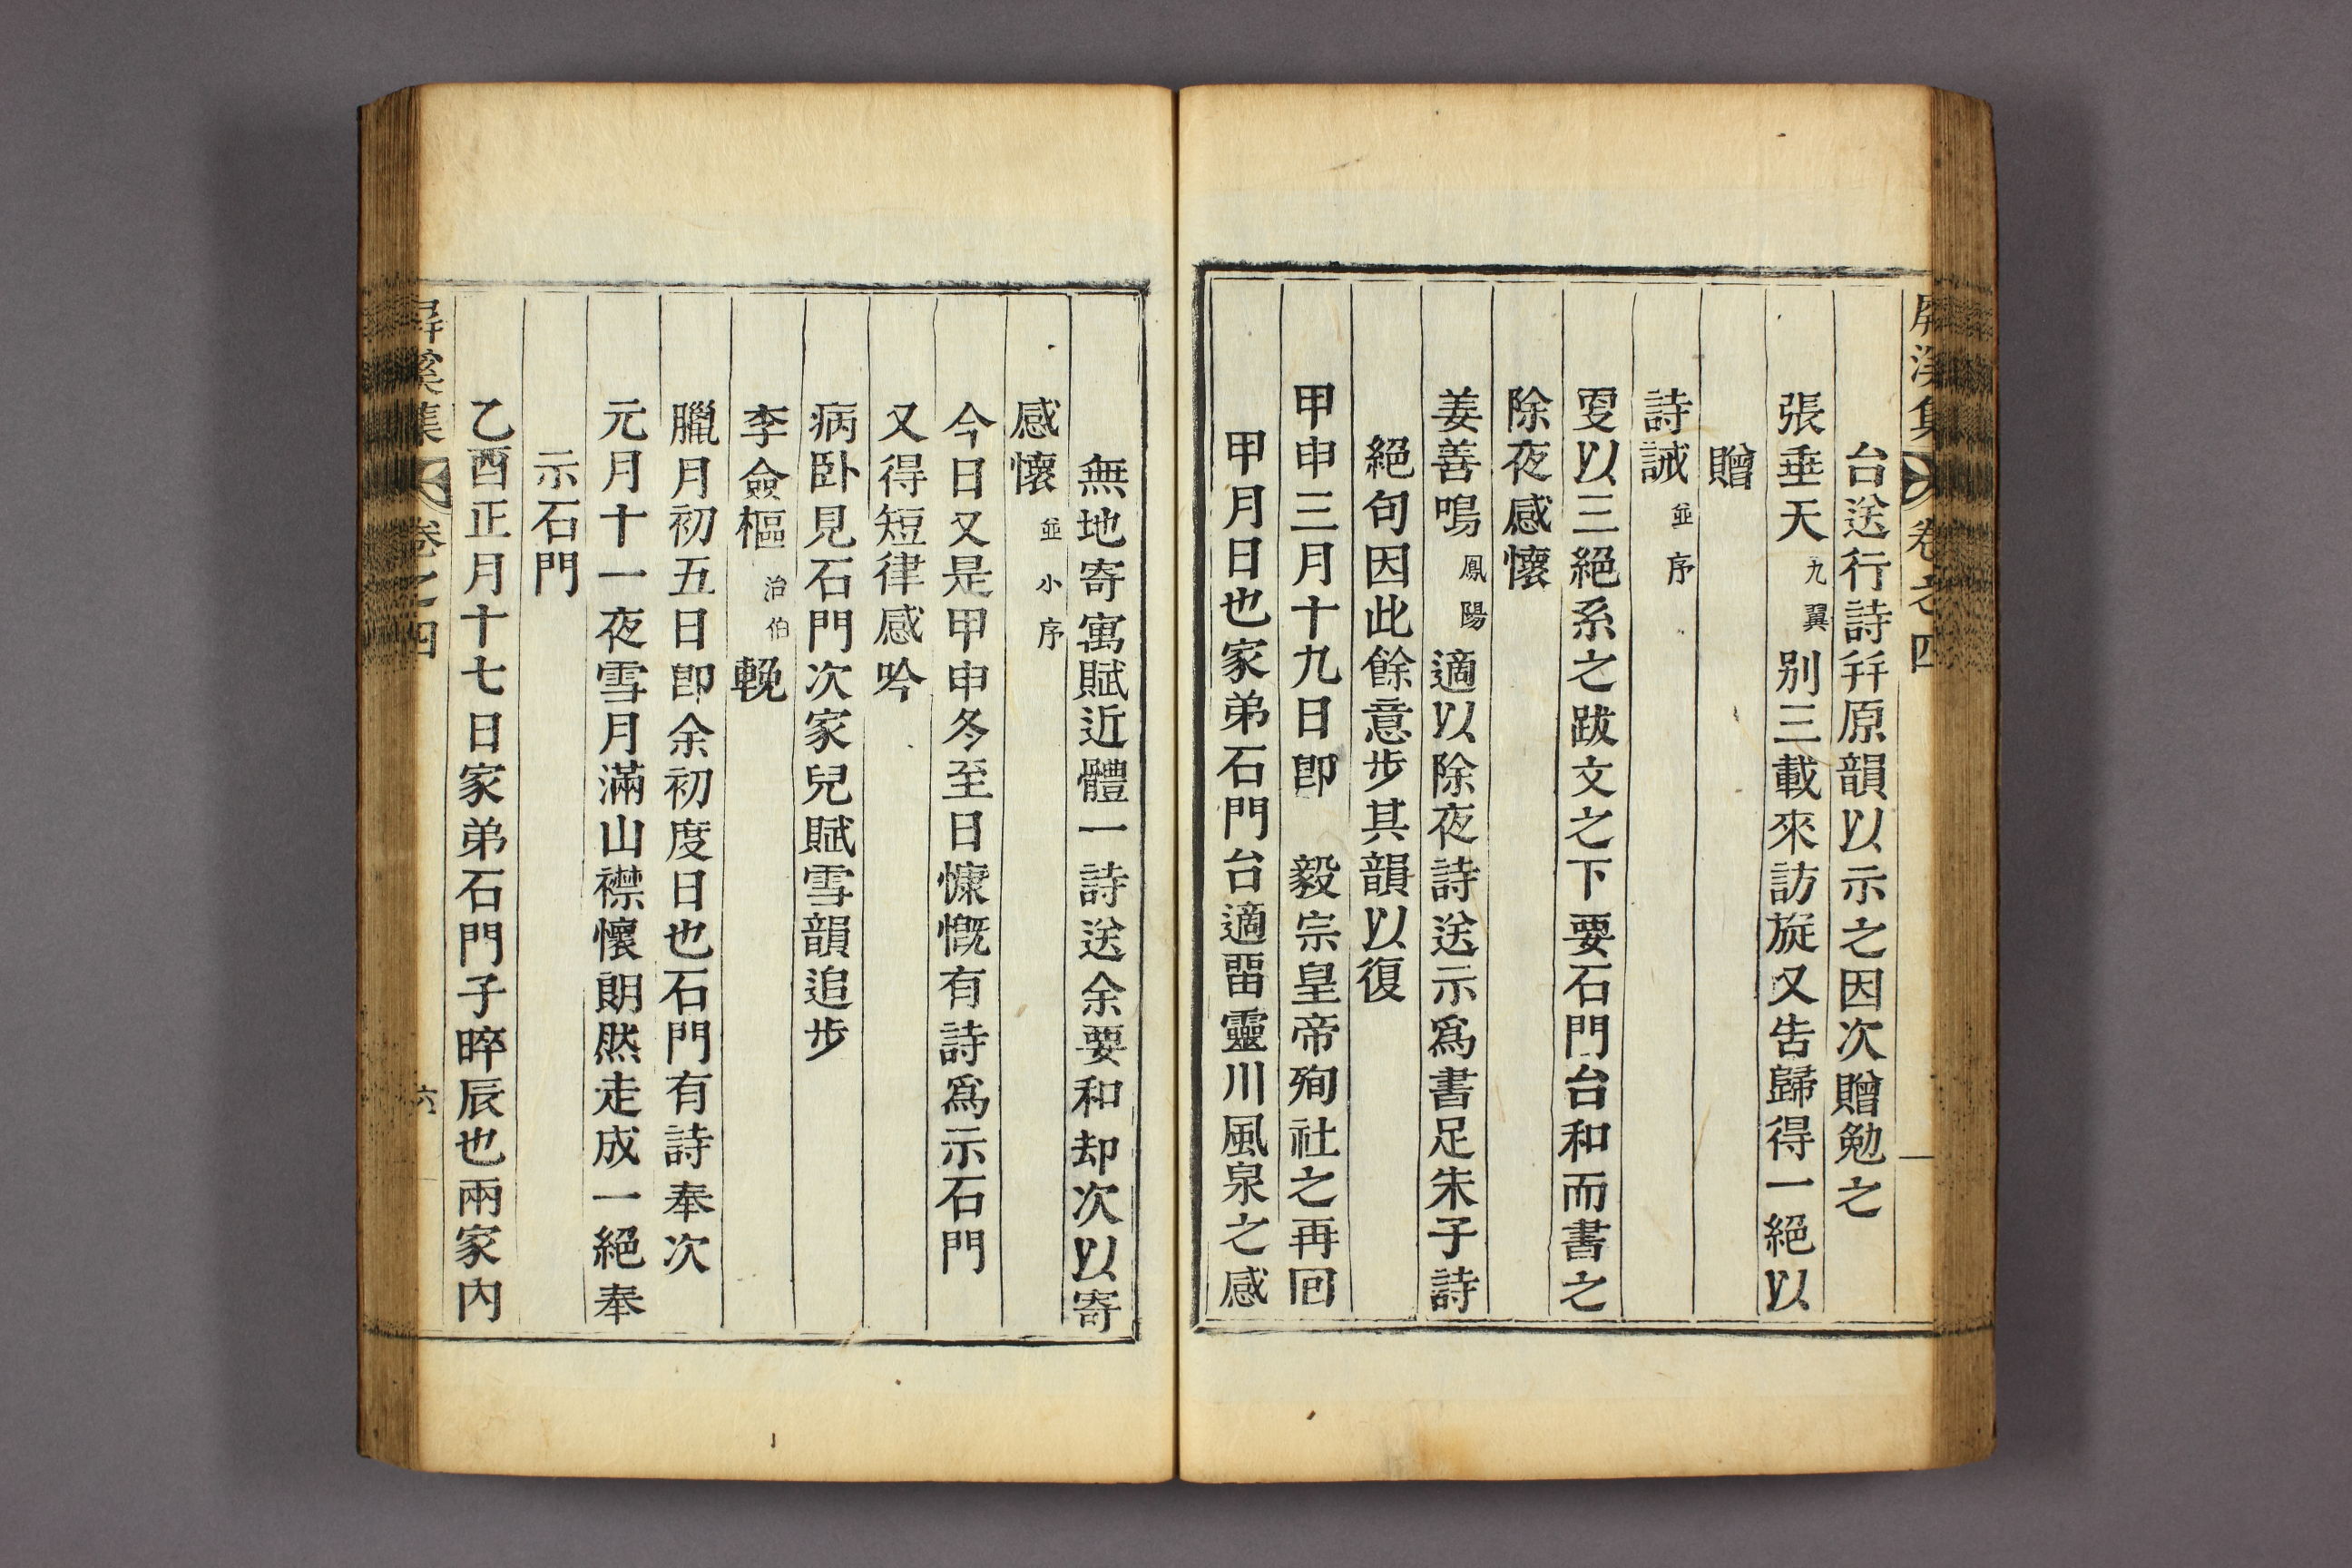 屛溪集 卷之四
台送行詩幷原韻以示之因次贈勉之
張垂天九翼別三載來訪旋又告歸得一絕以
贈
詩誡並序
更以三絕系之跋文之下要石門台和而書之
除夜感懷
姜善鳴鳳陽適以除夜詩送示爲書足朱子詩
絕句因此餘意步其韻以復
甲申三月十九日卽 毅宗皇帝殉社之再回
甲月日也家弟石門台適畱靈川風泉之感
無地寄寓賦近體一詩送余要和却次以寄
感懷並小序
今日又是甲申冬至日慷慨有詩爲示石門
又得短律感吟
病卧見石門次家兒賦雪韻追步
李僉樞治伯輓
臘月初五日卽余初度日也石門有詩奉次
元月十一夜雪月滿山襟懷朗然走成一絕奉
示石門
乙酉正月十七日家弟石門子晬辰也兩家內
屛溪集 卷之四 六